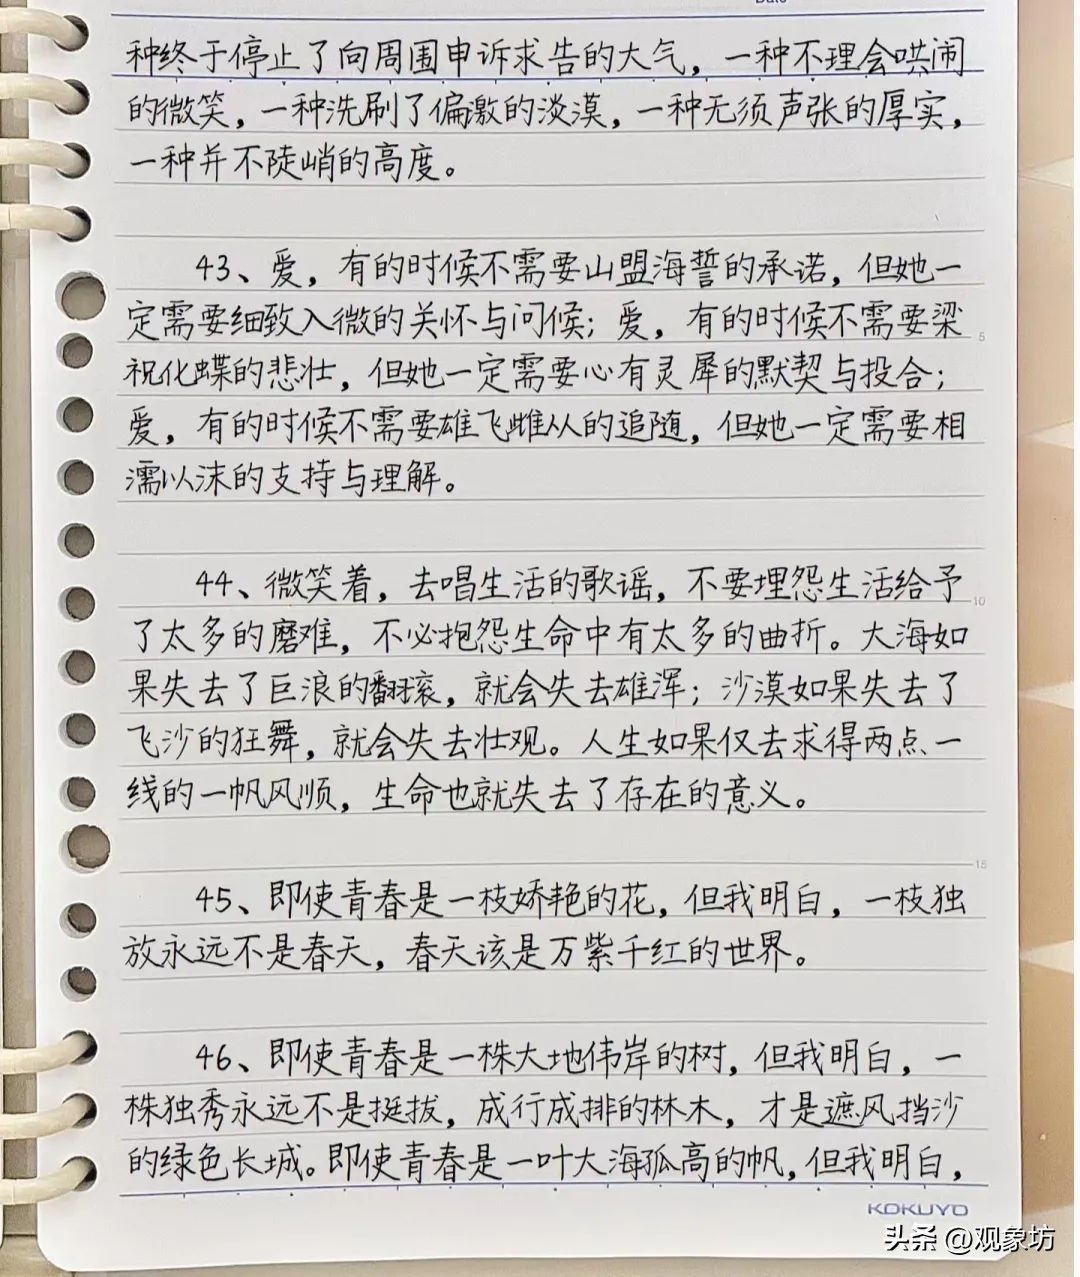 种终于停止了向周围申诉求告的大气，一种不理会哄闹
的微笑，一种洗刷了偏激的淡漠，一种无须声张的厚实，
一种并不陡峭的高度。
43、爱，有的时候不需要山盟海誓的承诺，但她一
定需要细致入微的关怀与问候；爱，有的时候不需要梁
祝化蝶的悲壮，但她一定需要心有灵犀的默契与投合；
爱，有的时候不需要雄飞雌从的追随，但她一定需要相
濡以沫的支持与理解。
44、微笑着，去唱生活的歌谣，不要埋怨生活给予
了太多的磨难，不必抱怨生命中有太多的曲折。大海如
果失去了巨浪的翻滚，就会失去雄浑；沙漠如果失去了
飞沙的狂舞，就会失去壮观。人生如果仅去求得两点一
线的一帆风顺，生命也就失去了存在的意义。
45、即使青春是一枝娇艳的花，但我明白，一枝独
放永远不是春天，春天该是万紫千红的世界。
46、即使青春是一株大地伟岸的树，但我明白，一
株独秀永远不是挺拔，成行成排的林木，才是遮风挡沙
的绿色长城。即使青春是一叶大海孤高的帆，但我明白，
5
10
15
KOKUYO
头条 @观象坊